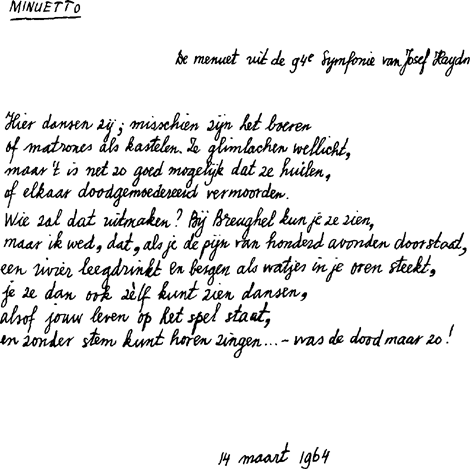 MINUETTO
De menuet uit de 94e Symfonie van Josef Haydn
Hier dansen zij; misschien zijn het boeren
of matrones als kastelen. Ze glimlachen wellicht,
maar 't is net zo goed mogelijk dat ze huilen,
of elkaar doodgemoedereerd vermoorden.
Wie zal dat uitmaken? Bij Breughel kun je ze zien,
maar ik wed, dat, als je de pijn van honderd avonden doorstaat,
een rivier leegdrinkt en bergen als watjes in je oren steekt,
je ze dan ook zèlf kunt zien dansen,
alsof jouw leven op het spel staat,
en zonder stem kunt horen zingen...- was de dood maar zo!
14 maart 1964